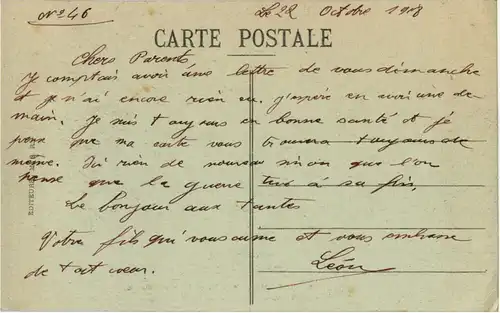 No 46
Le 22 Octobre 1918
CARTE POSTALE
Chers Parents,
Je comptais avoir une lettre de vous dimanche
et je n'ai encore rien eu. j'espère en avoir une de-
main. Je suis toujours en bonne santé et je
pense que ma carte vous trouvera toujours de
même. Ici rien de nouveau sinon que l'on
pense que la guerre tire à sa fin,
Le bonjour aux tantes
Votre fils qui vous aime et vous embrasse
de tout coeur. Léon